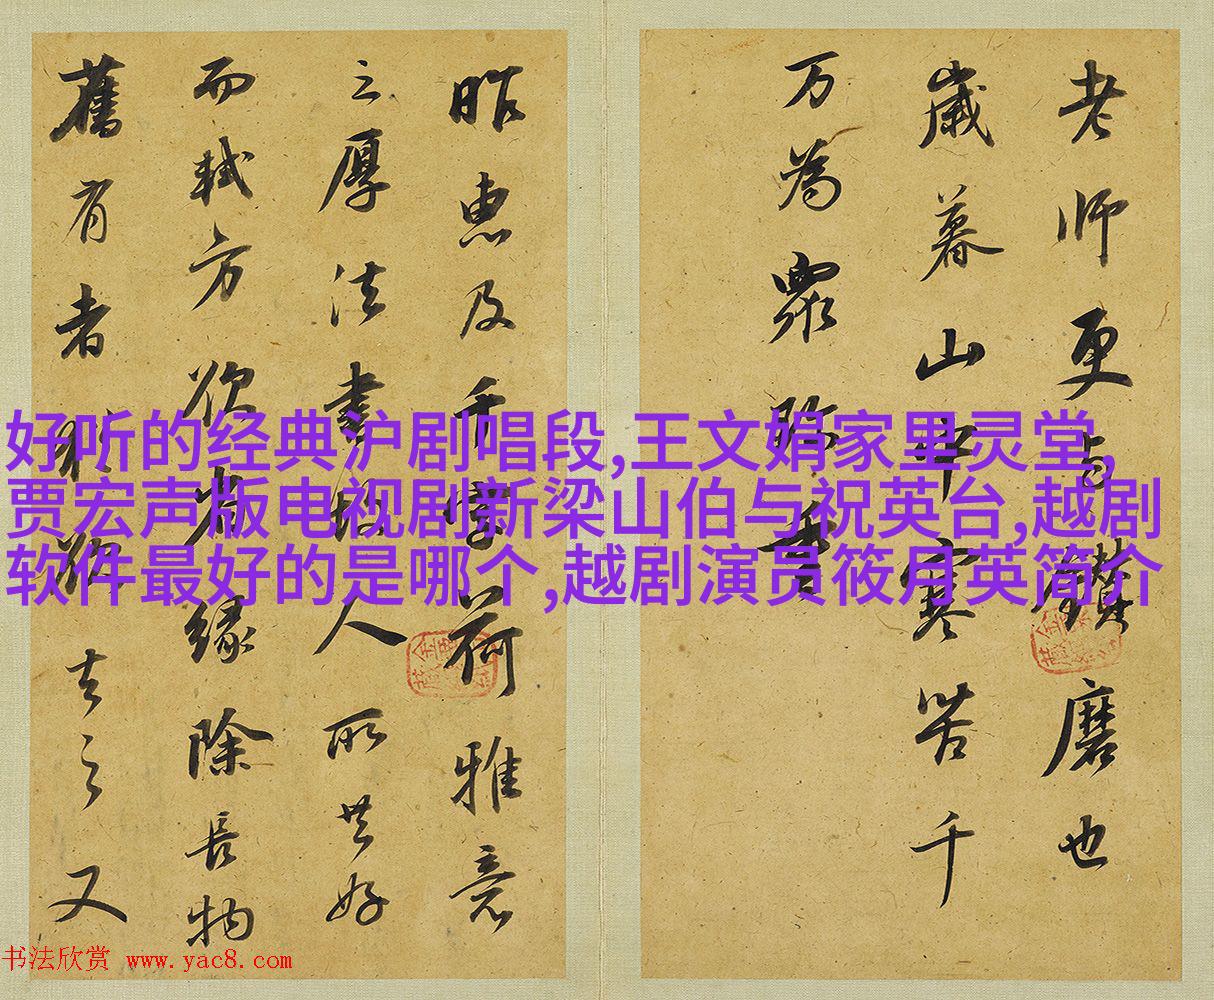 好听的经典沪剧唱段,王文娟家里灵堂,
贾宏声版电视剧新梁山伯与祝英台,越剧
软件最好的是哪个,越剧演员筱月英简介
老师更与磨也
歲暮山中寒苦千
万為眾珎重
昨惠及千字荷雅意
之厚法書故人所共好
而軾方欲省緣除長物
舊有者猶欲去之又
书法欣赏 www.yac8.com